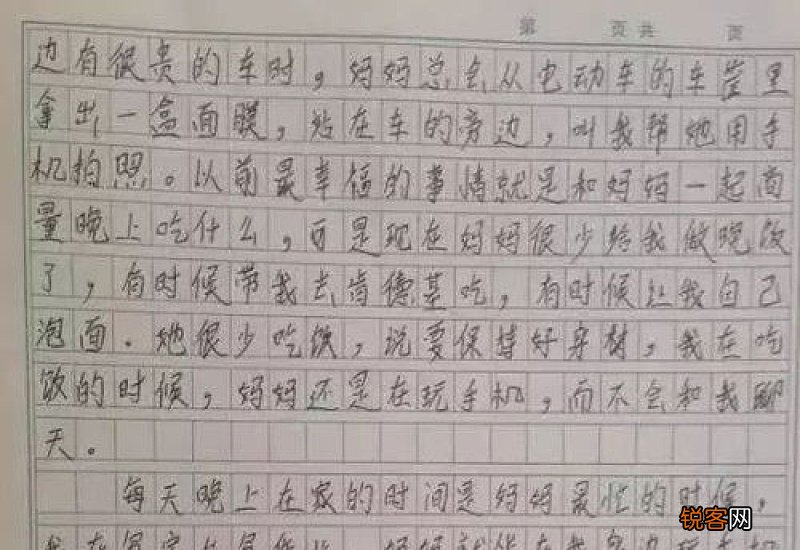 第 页共 页
边有很贵的车时，妈妈总会从电动车的车筐里
拿出一盒面膜，站在车的旁边，叫我帮她用手
机拍照。以前最幸福的事情就是和妈妈一起商
量晚上吃什么，可是现在妈妈很少给我做晚饭
了，有时候带我去肯德基吃，有时候让我自己
泡面．她很少吃饭，说要保持好身材，我在吃
饭的时候，妈妈还是在玩手机，而不会和我聊
天。
每天晚上在家的时间是妈妈最忙的时候，
锐客网